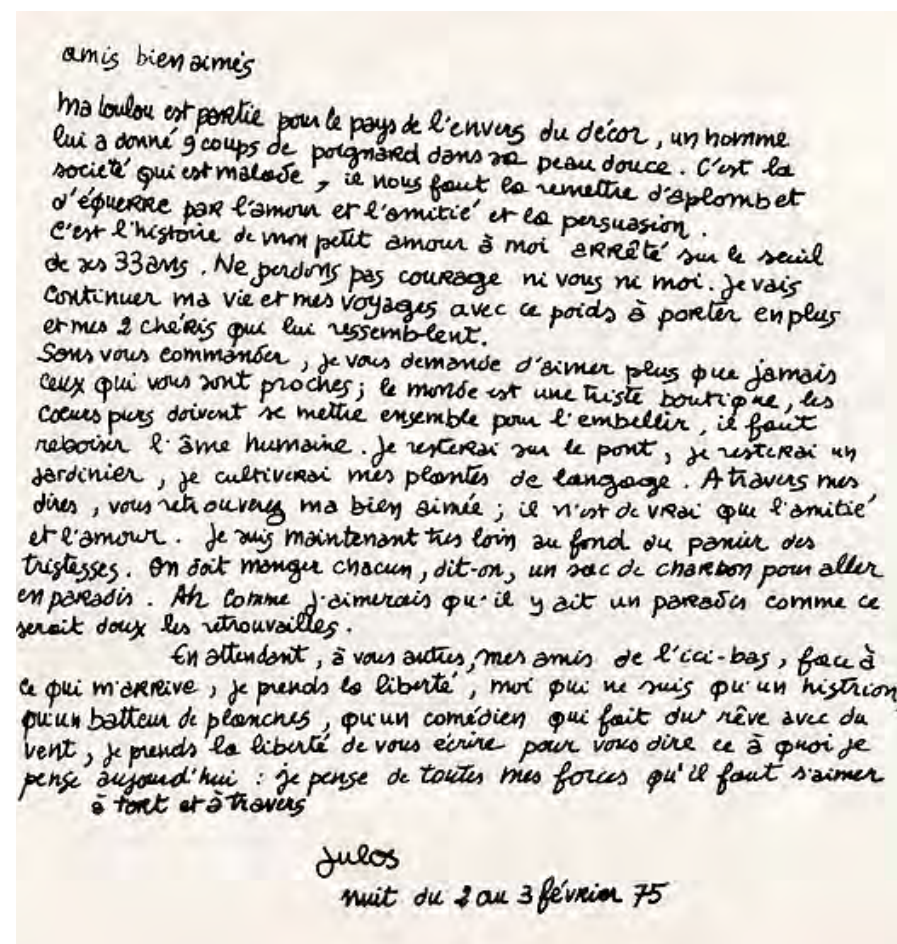 amis bien aimés
ma loulou est partie pour le pays de l'envers du décor, un homme
lui a donné 9 coups de poignard dans sa peau douce. C'est la
société qui est malade, il nous faut la remettre d'aplomb et
d'équerre par l'amour et l'amitié et la persuasion.
C'est l'histoire de mon petit amour à moi arrêté sur le seuil
de ses 33 ans. Ne perdons pas courage ni vous ni moi. Je vais
continuer ma vie et mes voyages avec ce poids à porter en plus
et mes 2 chéris qui lui ressemblent.
Sans vous commander, je vous demande d'aimer plus que jamais
ceux qui vous sont proches; le monde est une triste boutique, les
coeurs purs doivent se mettre ensemble pour l'embellir, il faut
reboiser l'âme humaine. Je resterai sur le pont, je resterai un
jardinier, je cultiverai mes plantes de langage. A travers mes
dires, vous retrouverez ma bien aimée; il n'est de vrai que l'amitié
et l'amour. Je suis maintenant très loin au fond du panier des
tristesses. On doit manger chacun, dit-on, un sac de charbon pour aller
en paradis. Ah comme j'aimerais qu'il y ait un paradis comme ce
serait doux les retrouvailles.
En attendant, à vous autres, mes amis de l'ici-bas, face à
ce qui m'arrive, je prends la liberté, moi qui ne suis qu'un histrion
qu'un batteur de planches, qu'un comédien qui fait du rêve avec du
vent, je prends la liberté de vous écrire pour vous dire ce à quoi je
pense aujourd'hui : je pense de toutes mes forces qu'il faut s'aimer
à tort et à travers
Julos
nuit du 2 au 3 février 75